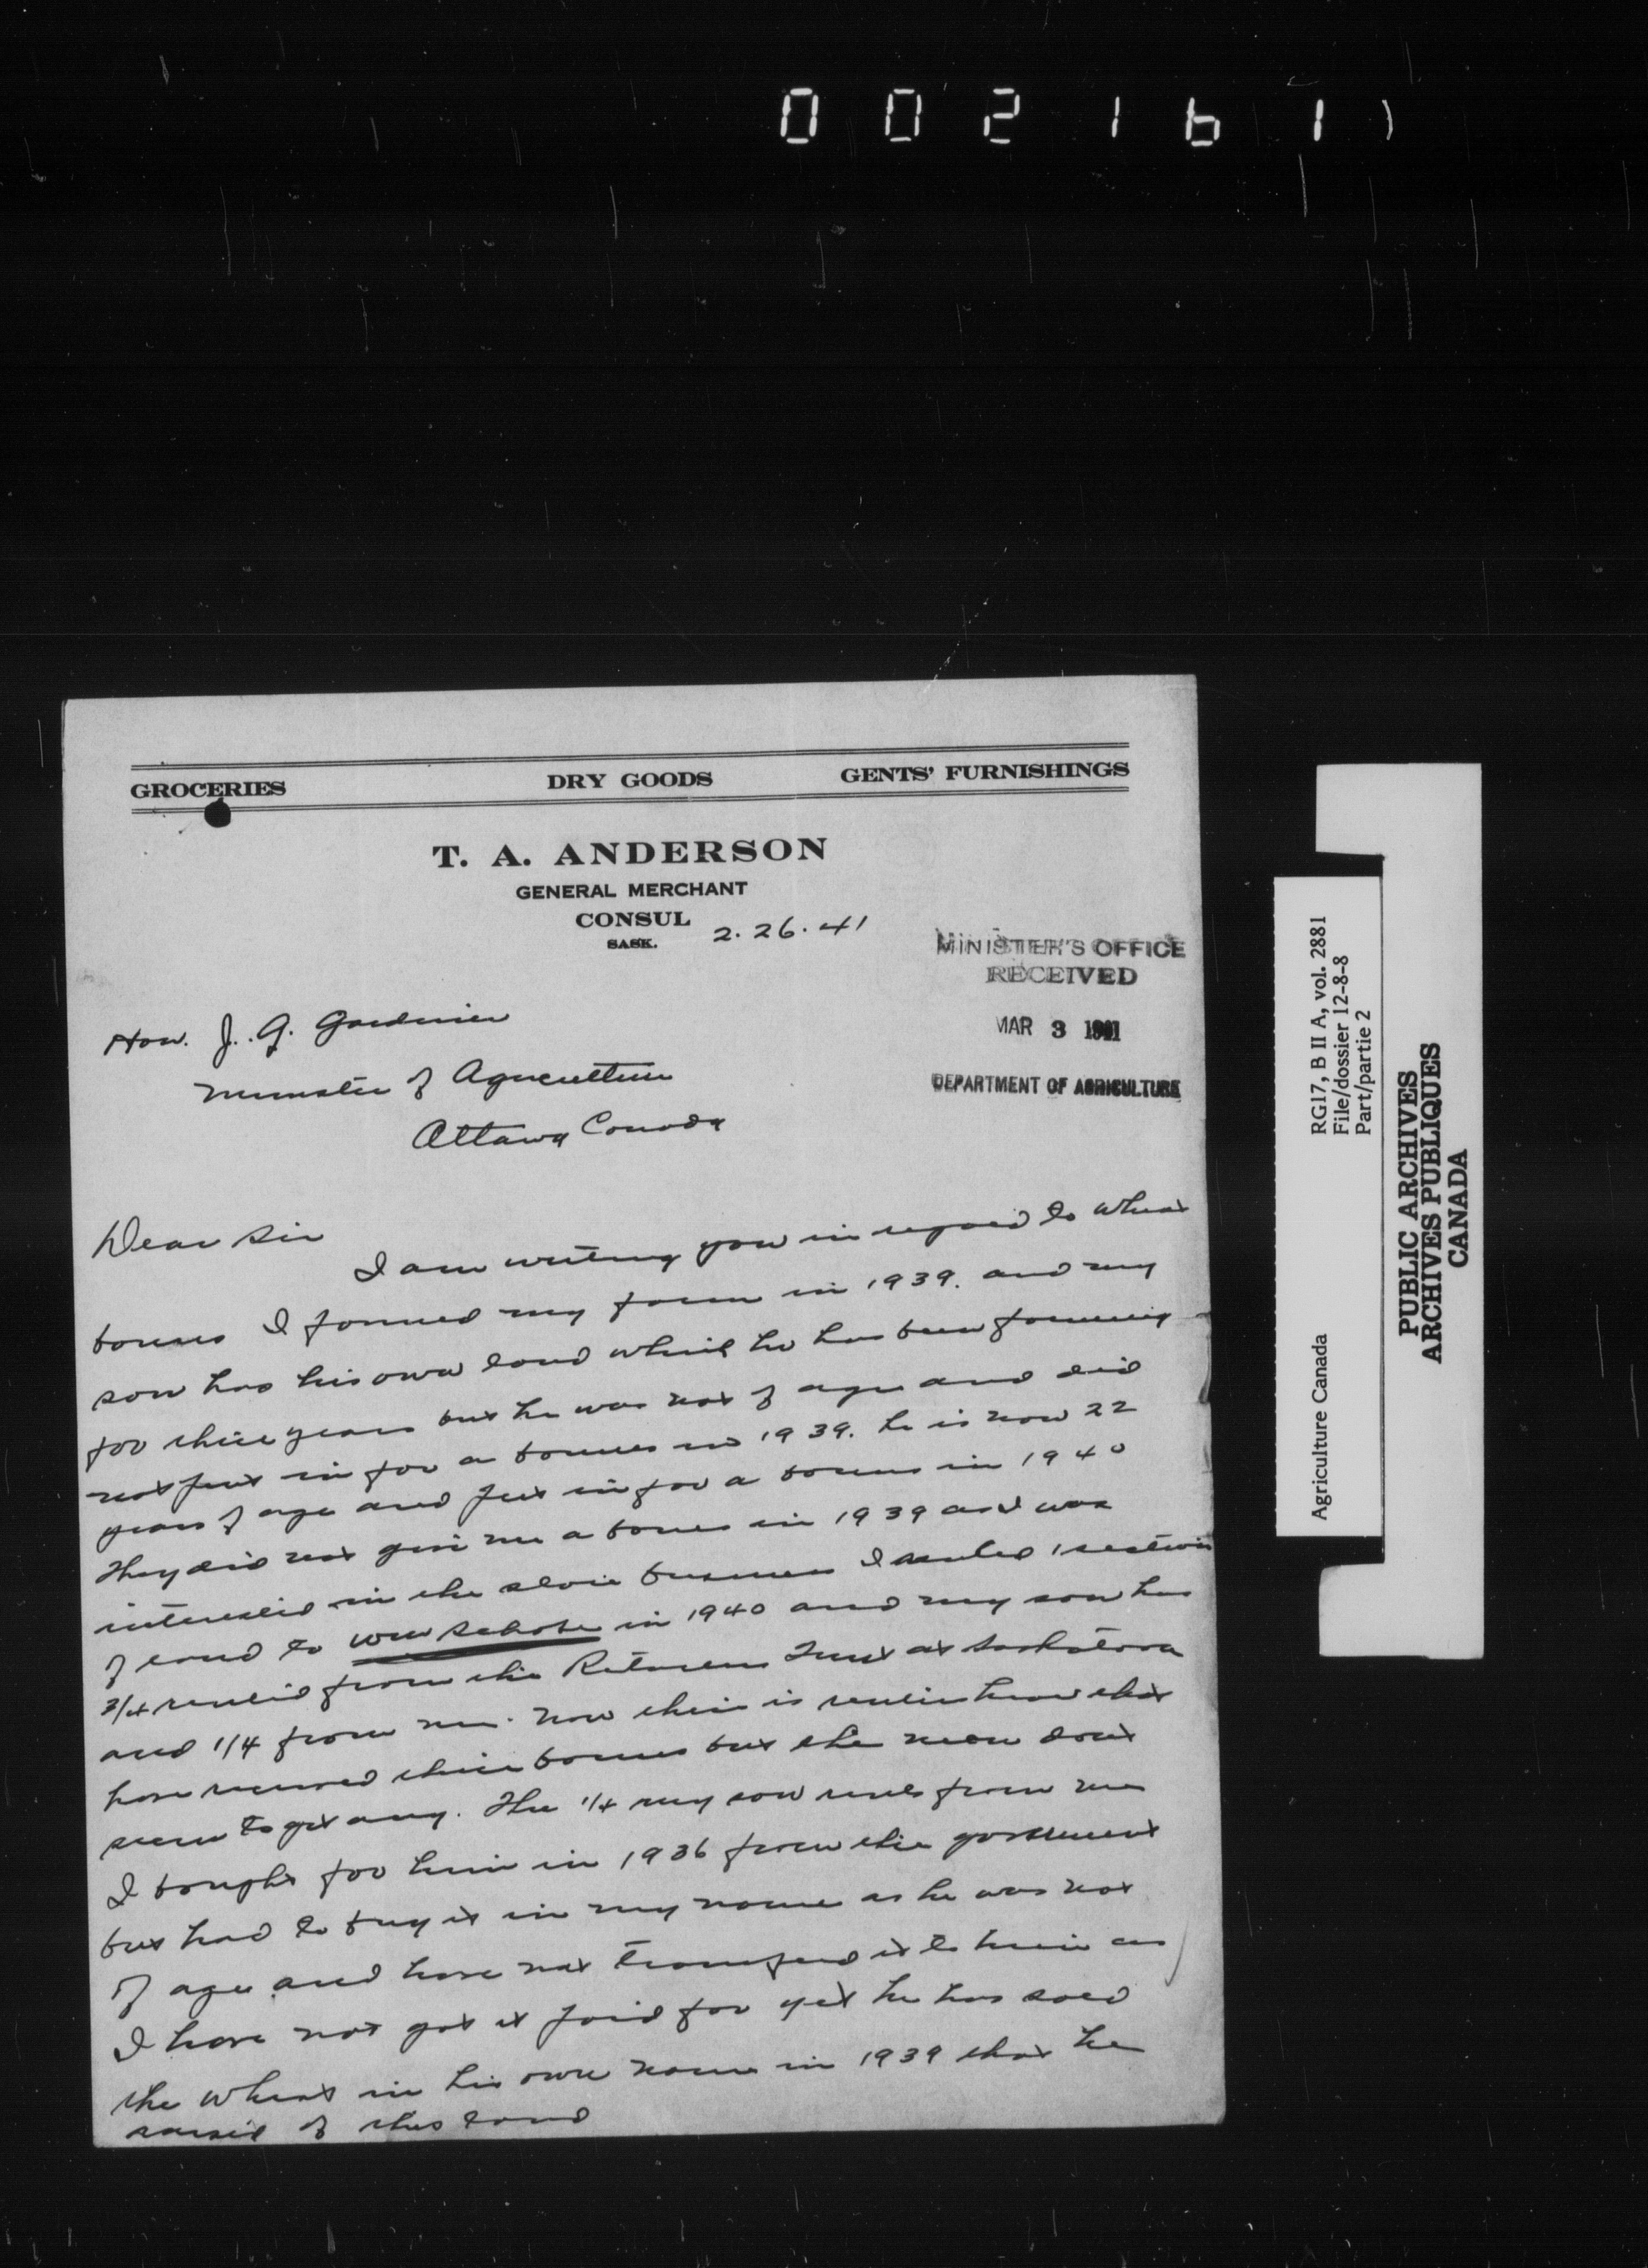 002161
GROCERIES DRY GOODS GENTS' FURNISHINGS
T. A. ANDERSON
GENERAL MERCHANT
CONSUL
SASK.
2.26.41
MINISTER'S OFFICE
RECEIVED
MAR 3 1941
DEPARTMENT OF AGRICULTURE
Hon. J. G. Gardinier
Minister of Agriculture
Ottawa Canada
Dear Sir
I am writing you in regard to wheat
bonus I farmed my farm in 1939. and my
son has his own land which he has been farming
for three years but he was not of age and did
not put in for a bonus in 1939. he is now 22
years of age and put in for a bonus in 1940
They did not give me a bonus in 1939 as I was
interested in the store business I rented 1 section
of land to Wm in 1940 and my son has
3/4 rented from the Trust at Saskatoon
and 1/4 from me. now their is renters here that
have received their bonus but the men dont
seem to get any. The 1/4 my son rents from me
I bought for him in 1936 from the goverment
but had to buy it in my name as he was not
of age and have not transferd it to him as
I have not got it paid for yet he has sold
the wheat in his own name in 1939 that he
raised of this land
Agriculture Canada RG17, B II A, vol. 2881
File/dossier 12-8-8
Part/partie 2
PUBLIC ARCHIVES
ARCHIVES PUBLIQUES
CANADA